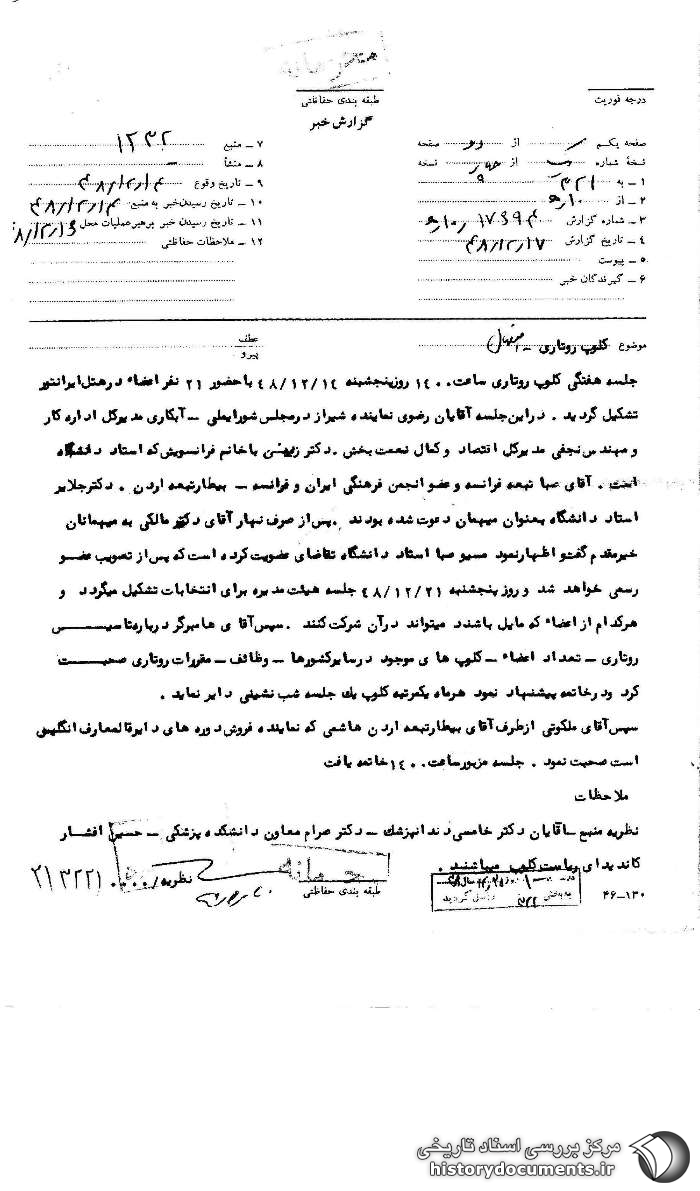 درجه فوریت
طبقه بندی حفاظتی
گزارش خبر
صفحه یکم از صفحه
نسخهٔ شماره از نسخه
۱ – به ۳۲۱
۲ – از ۱۰ره
۳ – شماره گزارش ۱۷۶۹۴ر۱۰ره
۴ – تاریخ گزارش ۴۸/۱۲/۱۷
۵ – پیوست
۶ – گیرندگان خبر
۷ – منبع ۱۲۳۲
۸ – منشأ –
۹ – تاریخ وقوع ۴۸/۱۲/۱۴
۱۰ – تاریخ رسیدن خبر به منبع ۴۸/۱۲/۱۴
۱۱ – تاریخ رسیدن خبر برهبر عملیات محل ۴۸/۱۲/۱۶
۱۲ – ملاحظات حفاظتی
موضوع کلوپ روتاری –
عطف
پیرو
جلسه هفتگی کلوپ روتاری ساعت ۱۴۰۰ روز پنجشنبه ۴۸/۱۲/۱۴ با حضور ۲۱ نفر اعضاء در هتل ایرانتور
تشکیل گردید . در این جلسه آقایان رضوی نماینده شیراز در مجلس شورایملی – آبکاری مدیرکل اداره کار
و مهندس نجفی مدیرکل اقتصاد و کمال نعمت بخش . دکتر با خانم فرانسویش که استاد دانشگاه
است . آقای صبا تبعه فرانسه و عضو انجمن فرهنگی ایران و فرانسه – بیطار تبعه اردن . دکتر جلایر
استاد دانشگاه بعنوان میهمان دعوت شده بودند . پس از صرف نهار آقای دکتر مالکی به میهمانان
خیرمقدم گفت و اظهار نمود مسیو صبا استاد دانشگاه تقاضای عضویت کرده است که پس از تصویب عضو
رسمی خواهد شد و روز پنجشنبه ۴۸/۱۲/۲۱ جلسه هیئت مدیره برای انتخابات تشکیل میگردد و
هرکدام از اعضاء که مایل باشند میتواند در آن شرکت کنند . سپس آقای هامبرگر درباره تاسیس
روتاری – تعداد اعضاء – کلوپ های موجود در سایر کشورها – وظائف – مقررات روتاری صحبت
کرد و در خاتمه پیشنهاد نمود هر ماه یکمرتبه کلوپ یك جلسه شب نشینی دایر نماید .
سپس آقای ملکوتی از طرف آقای بیطار تبعه اردن هاشمی که نماینده فروش دوره های دایرة المعارف انگلیس
است صحبت نمود . جلسه مزبور ساعت ۱۴۰۰ خاتمه یافت
ملاحظات
نظریه منبع – آقایان دکتر خامسی دندانپزشك – دکتر صرام معاون دانشکده پزشکی – حسین افشار
کاندیدای ریاست کلوپ میباشند .
نظریه/
طبقه بندی حفاظتی
به بخش ۳۲۲ واصل گردید
۴۶–۱۳۰
مرکز بررسی اسناد تاریخی
historydocuments.ir